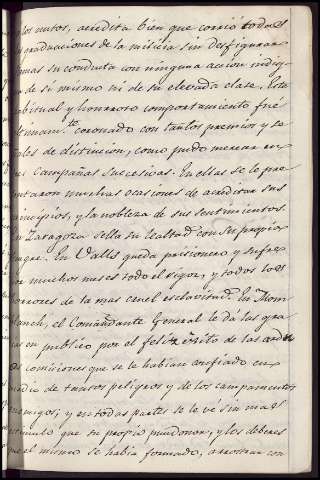 los nutos, acredita bien que corrió todas
graduaciones de la milicia sin desfigurar
mas su conducta con ninguna accion indig-
de si mismo ni de su elevada clase. Este
bitual y honroso comportamiento fué
timam.te coronado con tantos premios y se
ales de distincion, como pudo merecer en
Campañas sucesivas. En ellas se le pre
ntaron muchas ocasiones de acreditar sus
incipios, y la nobleza de sus sentimientos.
n Zaragoza sella su lealtad con su propia
ngre. En Valls queda prisionero y sufre
or muchos meses todo el rigor, y todos los
orrores de la mas cruel esclavitud. En
el Comandante General le da las gra
as en publico por el feliz éxito de las ardu
as comisiones que se le habian confiado en
medio de tantos peligros y de los campamentos
nemigos; y en todas partes se le vé sin mas
timulo que su propio pundonor, y los deberes
ue el mismo se habia formado, arrostrar con